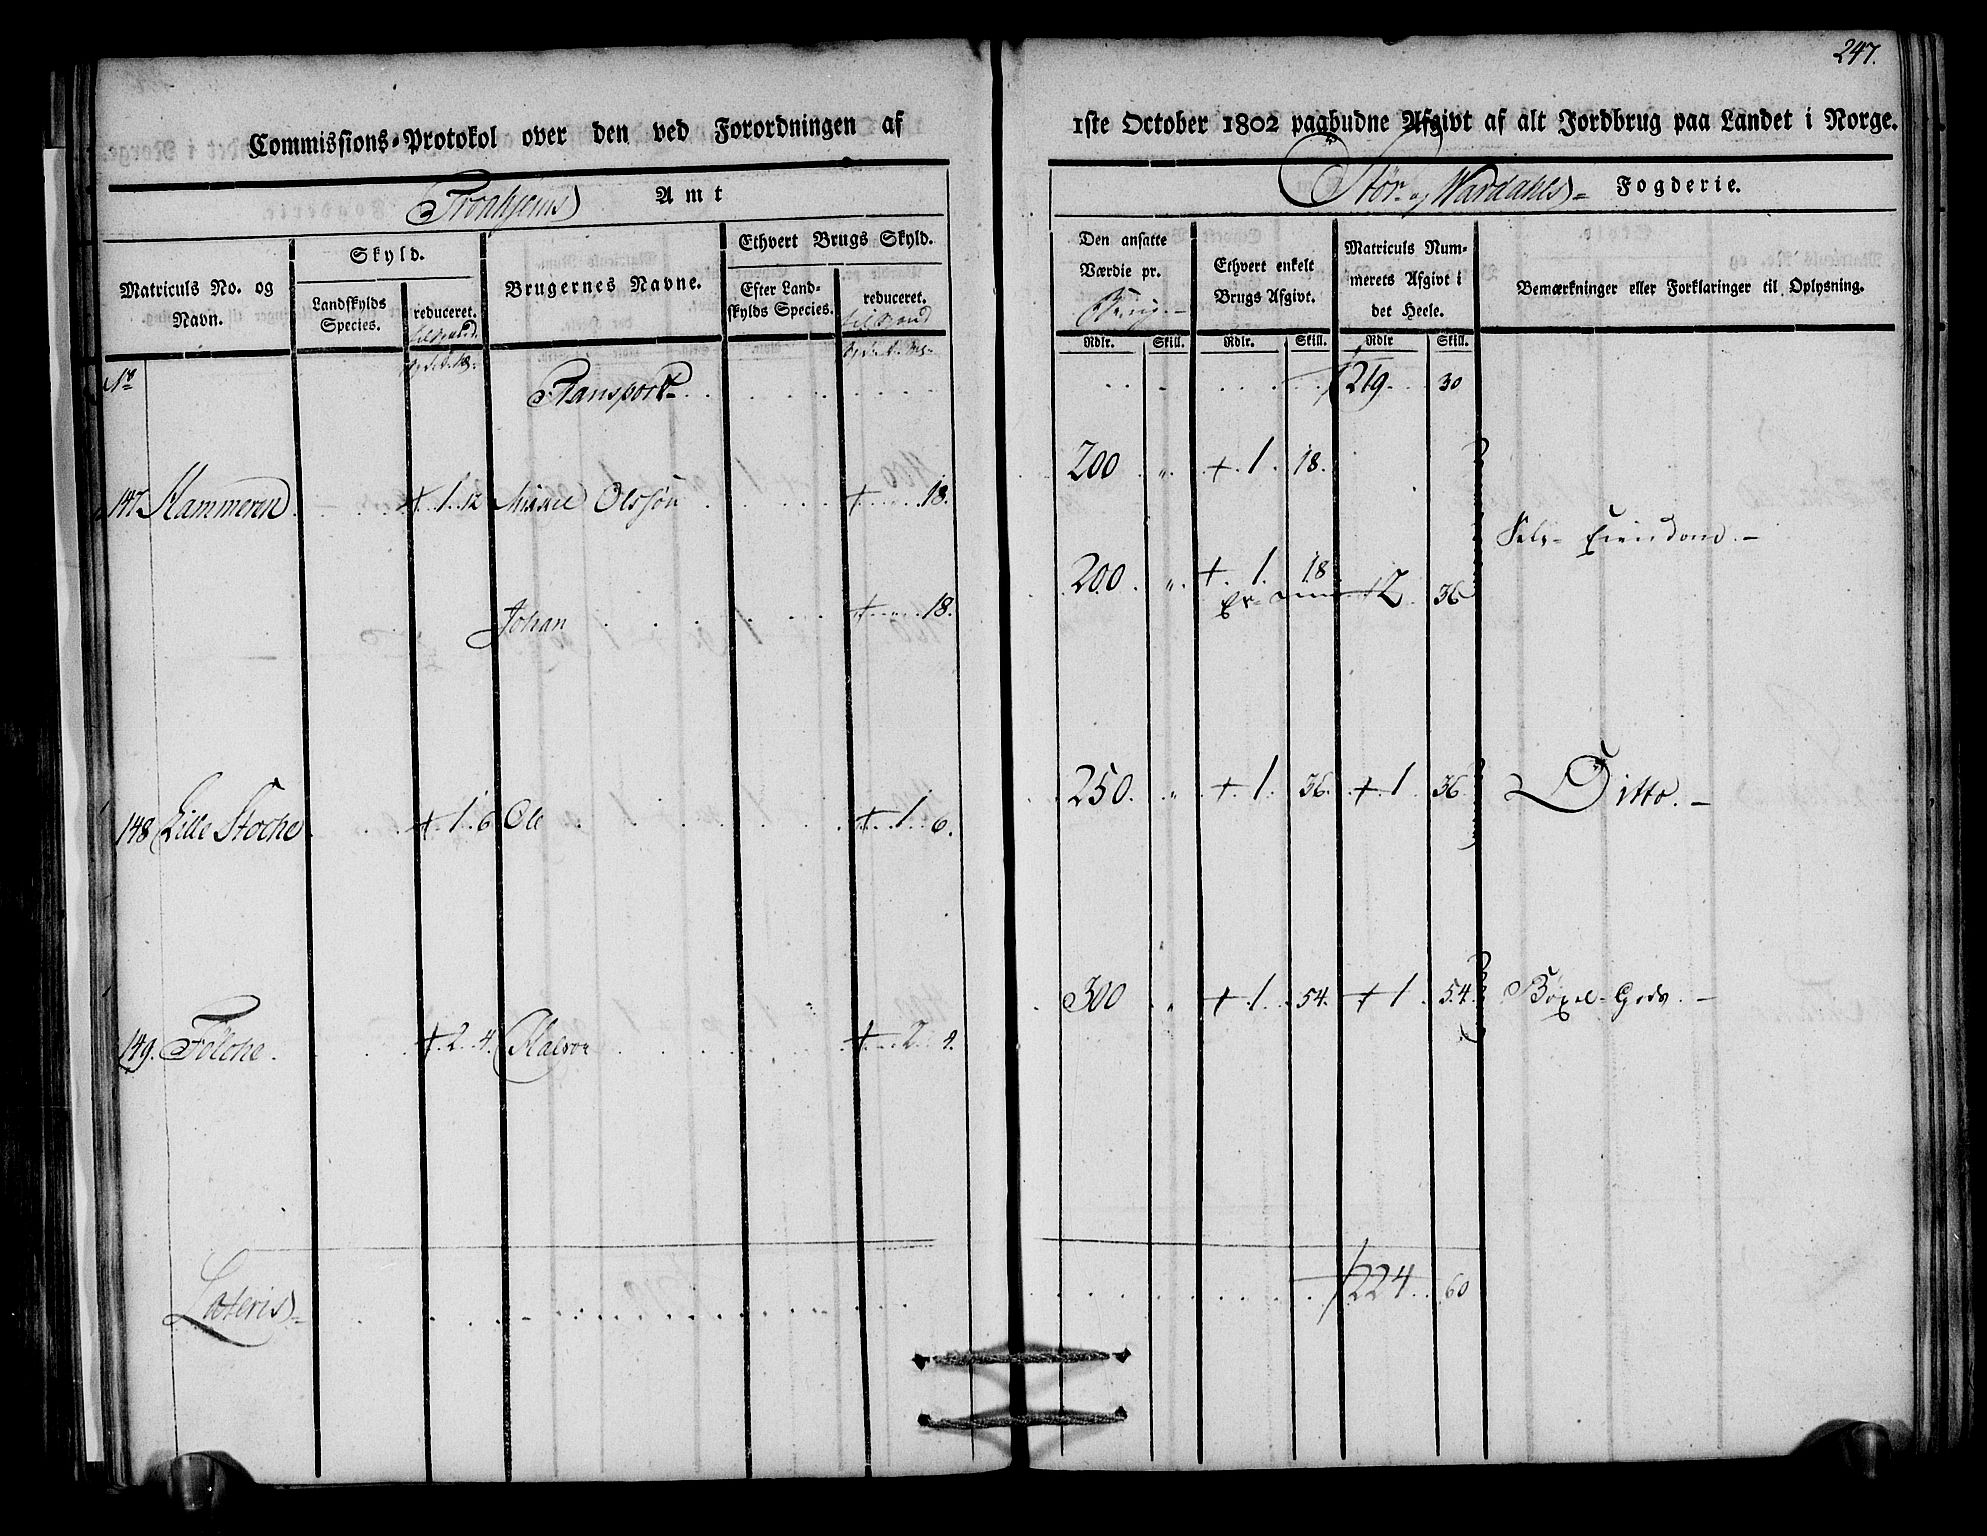 247.
Commissions-Protokol over den ved Forordningen af 1ste October 1802 paabudne Afgivt af alt Jordbrug paa Landet i Norge.
Tronhjems Amt
Stör- og Wærdahls Fogderie.
Matriculs No. og Navn.
Skyld.
Landskylds Species.
reduceret.
Brugernes Navne.
Ethvert Brugs Skyld.
Efter Landskylds Species.
reduceret.
Den ansatte Værdie pr. Brug
Ethvert enkelt Brugs Afgivt.
Matriculs Nummerets Afgivt i det Heele.
Bemærkninger eller Forklaringer til Oplysning.
Rdlr. Skill. Rdlr. Skill. Rdlr Skill.
No Transport 1219 30
147 Hammeren 1. 12 Mikkel Olssøn 18. 200 1. 18.
Selv-Eiendom.
Johan 18. 200 1. 18 2 36
148 Lille Stoche 1. 6 Ole 1. 6. 250. 1. 36. 1 36 Ditto.
149. Folche 2. 4. Halvor 2. 4. 300 1. 54. 1. 54. Böxel-Gods.
Lateris 1224 60